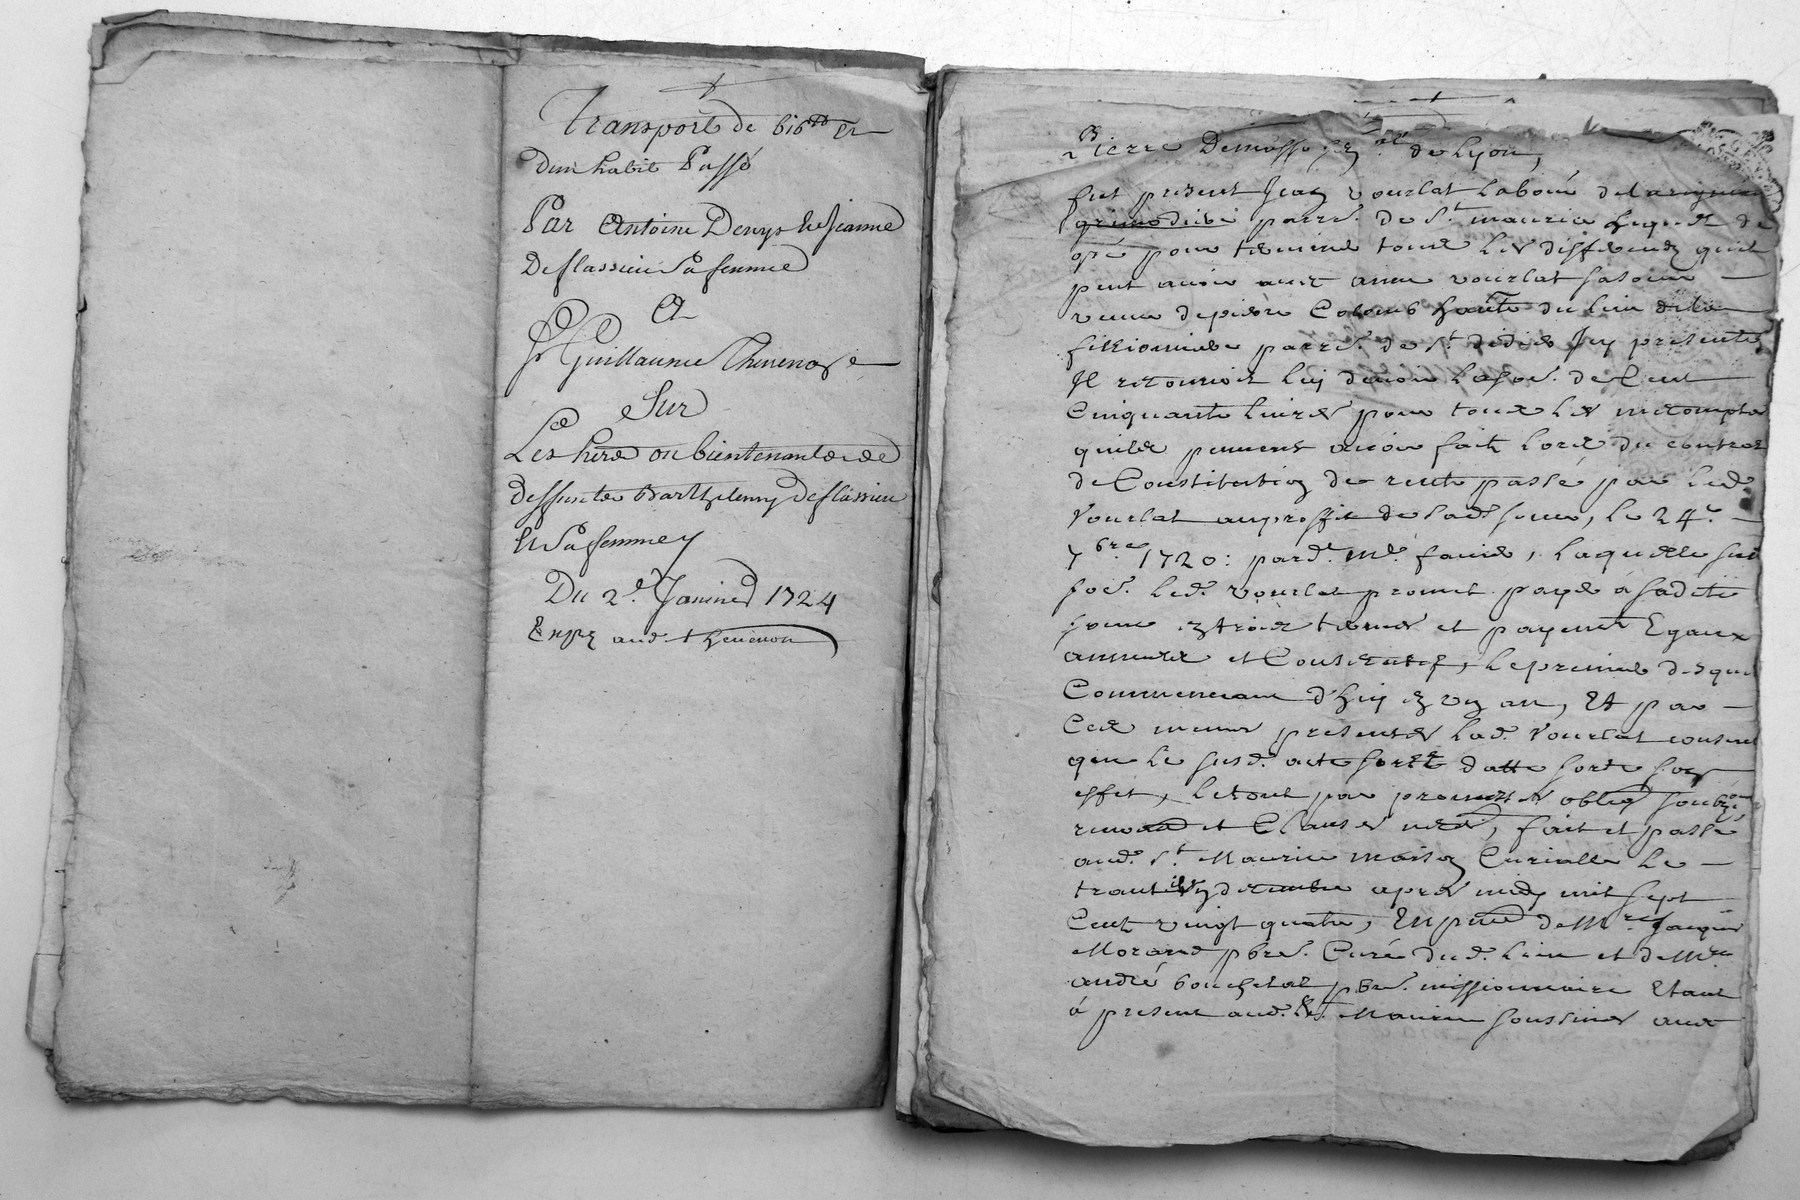 Transport de 616 ## Et
dun habit Passé
Par Antoine Denys & Jeanne
Deflassieu Sa femme
A
Sr Guillaume Thevenon
Sur
Les hers ou bientenants de
deffuncte Barthelemy Deflassieu
Et Sa femme
Du 2e. Janvier 1724
Exp aud thevenon
Pierre de Lyon,
fut present Jean vourlat laboureur de
parre. de St maurice lequel de
gré pour terminer toutes les differends quil
peut avoir avec anne vourlat sa soeur
veuve de pierre Colomb du lieu de la
parre. de St didier Icy presente
Il reconnoit luy devoir la som. de Cent
Cinquante livres pour tous les mecomptes
quils peuvent avoir fait lors du contrat
de Constitution de rente passé par led.
Vourlat au proffit de lad. soeur, le 24e.
7bre 1720: pard. Me. laquelle susd.
som. led. vourlat promet payer a sadite
soeur en trois termes et payements Egaux
annuels et Consecutifs, le premier desquels
Commencera d'huy en un an, Et par
Ces mesmes presentes lad. Vourlat consent
que le susd. acte sorte son
effet, le tout par promesses oblig.
renon et Clauses, fait et passé
aud. St. Maurice maison Curialle le
decembre apres midy mil sept
Cent vingt quatre, En pnce de Mre Jacques
Morand pbre. Curé dud. lieu et de Mre
andré bouchetal pbre. missionnaire Etant
a present aud. St. Maurice soussignes avec